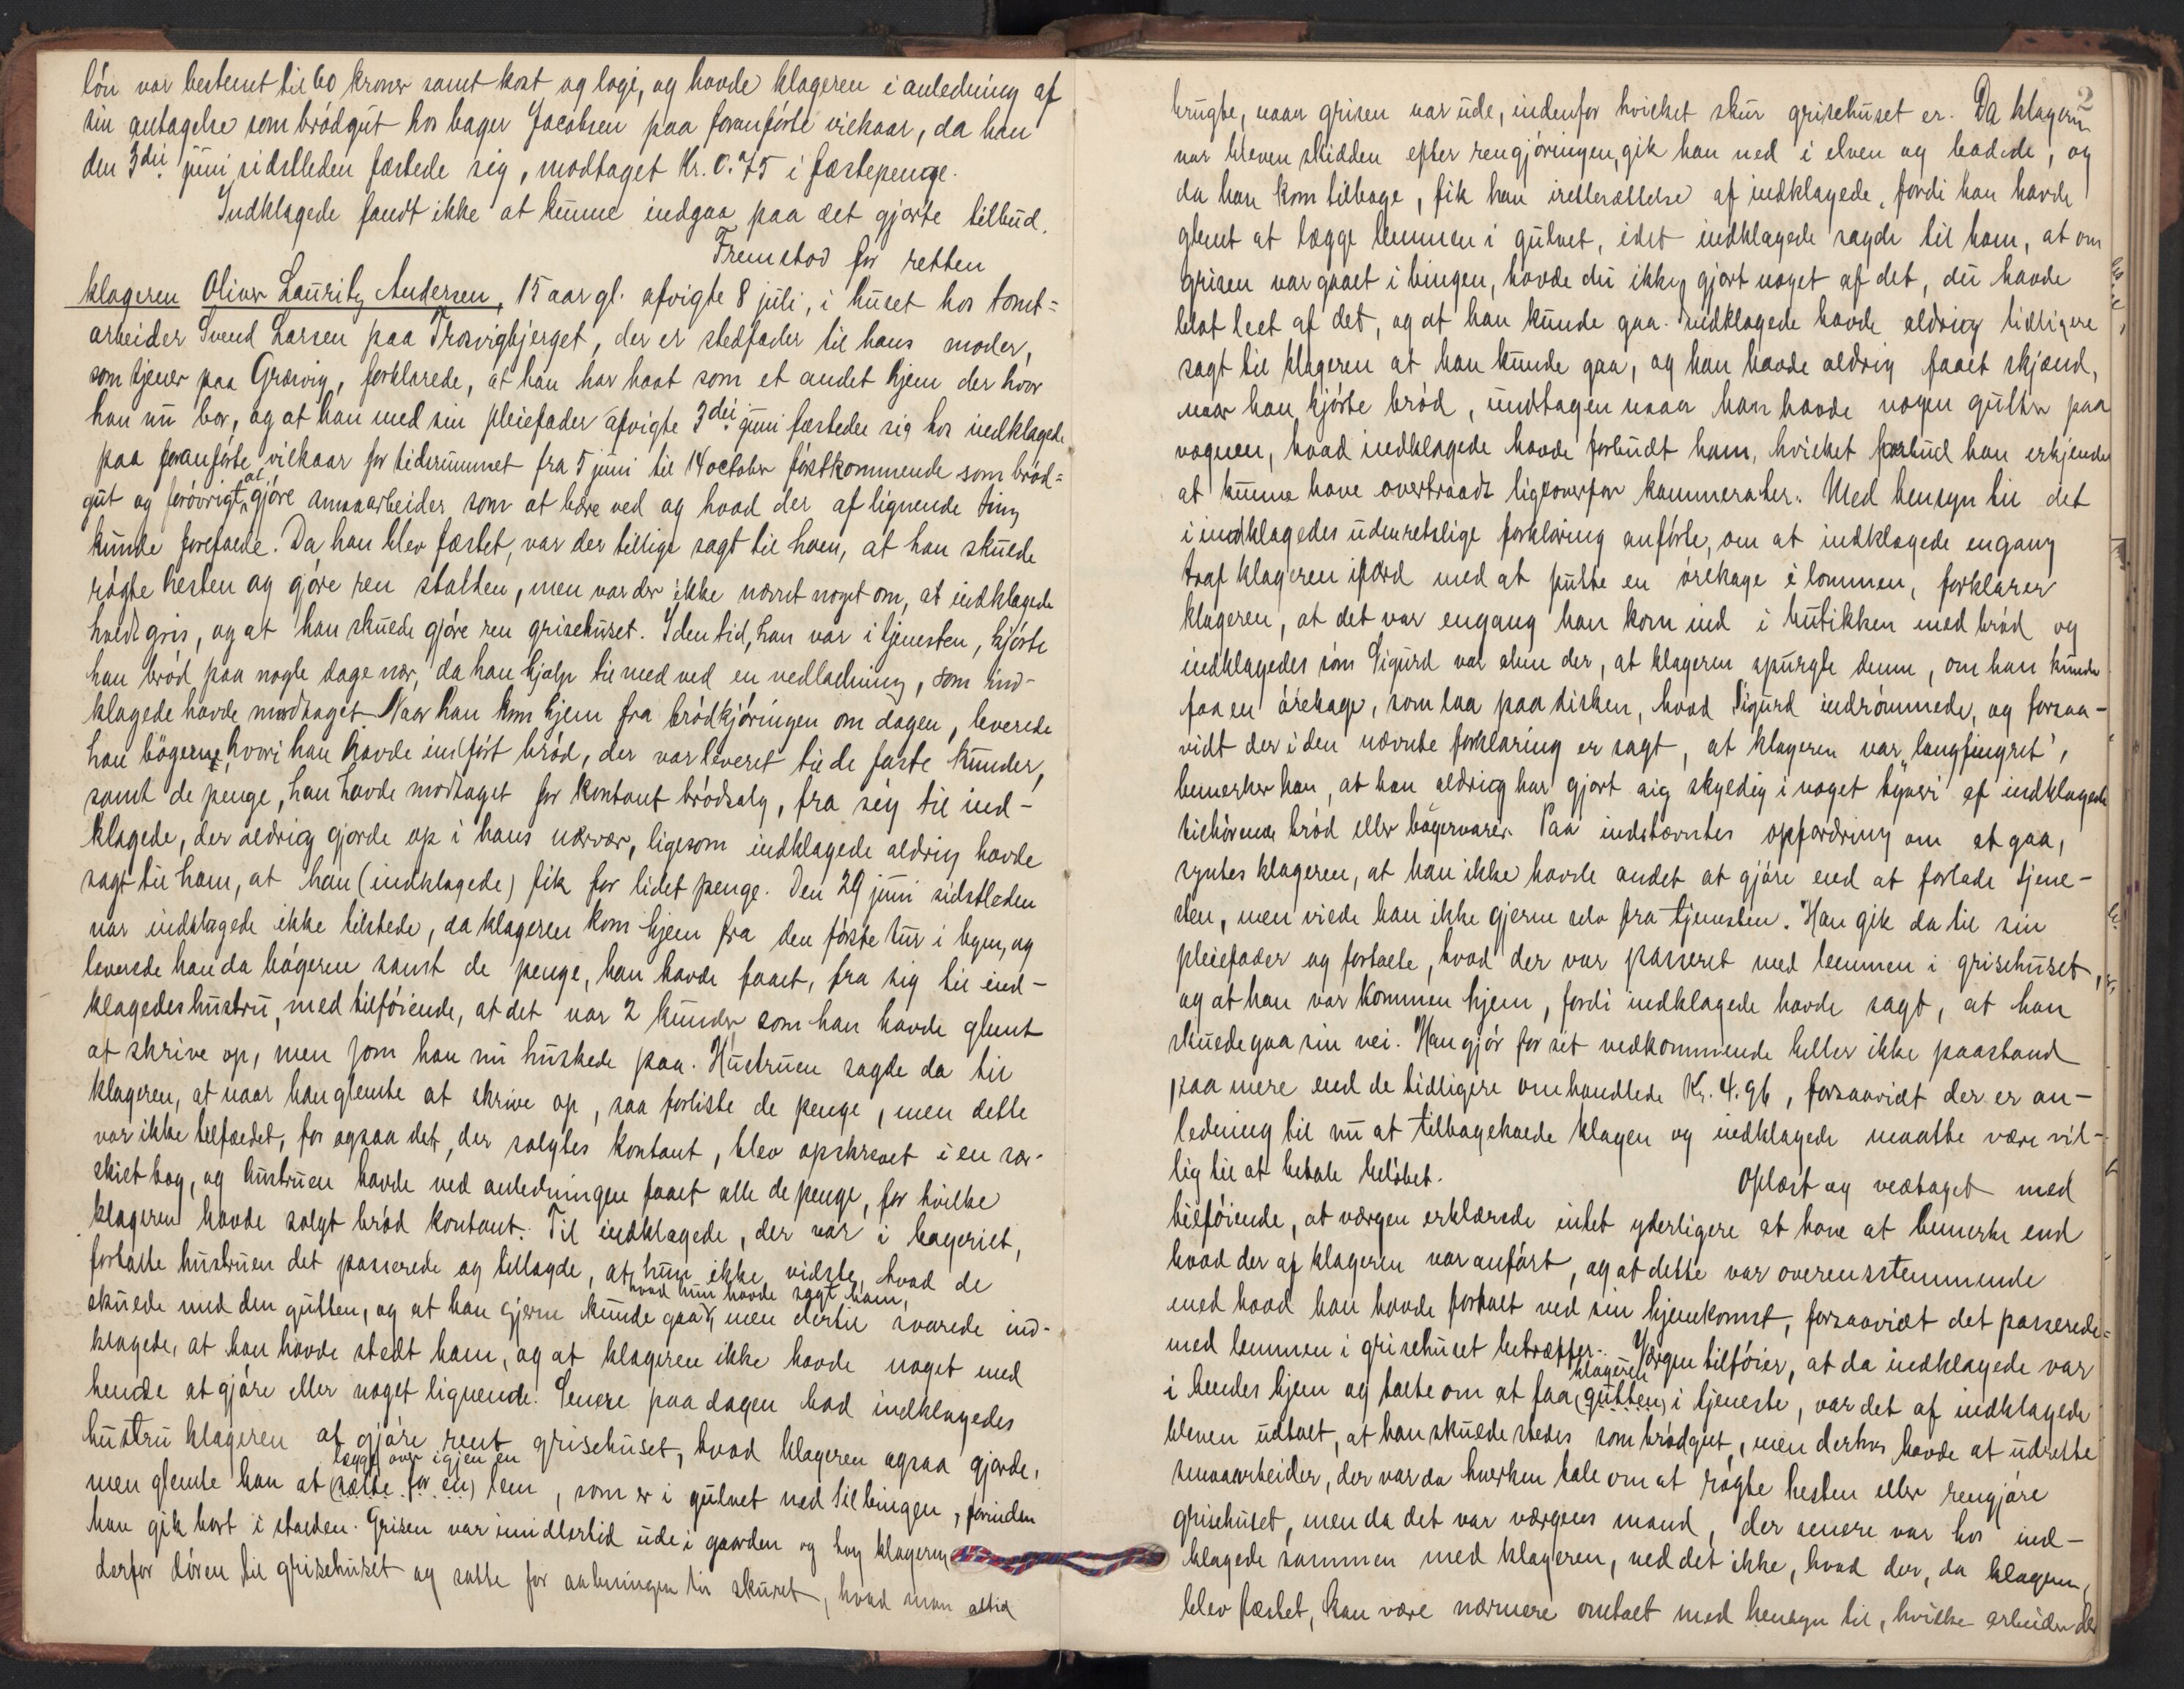 lön var bestemt til 60 kroner samt kost og logi, og havde klageren i anledning af
sin antagelse som brödgut hos bager Jacobsen paa foranförte vilkaar, da han
den 3die juni sidstleden fæstede sig, modtaget Kr. 0.75 i fæstepenge.
Indklagede fandt ikke at kunne indgaa paa det gjorte tilbud.
Fremstod for retten
klageren Oliver Lauritz Andersen, 15 aar gl. afvigte 8 juli, i huset hos tomt=
arbeider Svend Larsen paa Trosvigbjerget, der er stedfader til hans moder,
som tjener paa Græsvig, forklarede, at han har havt som et andet hjem der hvor
han nu bor, og at han med sin pleiefader afvigte 3die juni fæstede sig hos indklagede
paa foranförte vilkaar for tidsrummet fra 5 juni til 14 october förstkommende som bröd=
gut og forövrigt at gjöre smaaarbeider som at bære ved og hvad der af lignende ting
kunde forefalde. Da han blev fæstet, var der tillige sagt til ham, at han skulde
rögte hesten og gjöre ren stalden, men var der ikke nævnt noget om, at indklagede
holdt gris, og at han skulde gjöre ren grisehuset. I den tid, han var i tjenesten, kjörte
han bröd paa nogle dage nær, da han hjalp til med ved en vedladning, som ind-
klagede havde modtaget. Naar han kom hjem fra brödkjöringen om dagen, leverede
han bögerne, hvori han havde indfört bröd, der var leveret til de faste kunder,
samt de penge, han havde modtaget for kontant brödsalg, fra sig til ind-
klagede, der aldrig gjorde op i hans nærvær, ligesom indklagede aldrig havde
sagt til ham, at han (indklagede) fik for lidet penge. Den 29 juni sidstleden
var indklagede ikke tilstede, da klageren kom hjem fra den förste tur i byen, og
leverede han da bögerne samt de penge, han havde faaet, fra sig til ind-
klagedes hustru, med tilföiende, at det var 2 kunder som han havde glemt
at skrive op, men som han nu huskede paa. Hustruen sagde da til
klageren, at naar han glemte at skrive op, saa forliste de penge, men dette
var ikke tilfældet, for ogsaa det, der solgtes kontant, blev opskrevet i en sær-
skilt bog, og hustruen havde ved anledningen faaet alle de penge, for hvilke
klageren havde solgt bröd kontant. Til indklagede, der var i bageriet,
fortalte hustruen det passerede og tillagde, at hun ikke vidste, hvad de
skulde med den gutten, og at han gjerne kunde gaa, hvad hun havde sagt ham, men dertil svarede ind-
klagede, at han havde stedt ham, og at klageren ikke havde noget med
hende at gjöre eller noget lignende. Senere paa dagen bad indklagedes
hustru klageren at gjöre rent grisehuset, hvad klageren ogsaa gjorde,
men glemte han at (sætte for en) lægge over igjen en lem, som er i gulvet ned til bingen, förinden
han gik bort i stalden. Grisen var imidlertid ude i gaarden og tog klageren
derfor dören til grisehuset og satte for aabningen til skuret, hvad man altid
2
brugte, naar grisen var ude, indenfor hvilket skur grisehuset er. Da klageren
var bleven skidden efter rengjöringen, gik han ned i elven og badede, og
da han kom tilbage, fik han irettesættelse af indklagede, fordi han havde
glemt at lægge lemmen i gulvet, idet indklagede sagde til ham, at om
grisen var gaaet i bingen, havde du ikke gjort noget af det, du havde
blot leet af det, og at han kunde gaa. Indklagede havde aldrig tidligere
sagt til klageren at han kunde gaa, og han havde aldrig faaet skjænd,
naar han kjörte bröd, undtagen naar han havde nogen gutter paa
vognen, hvad indklagede havde forbudt ham, hvilket forbud han erkjender
at kunne have overtraadt ligeoverfor kammerater. Med hensyn til det
i indklagedes udenretslige forklaring anförte, om at indklagede engang
traf klageren ifærd med at putte en örekage i lommen, forklarer
klageren, at det var engang han kom ind i butikken med bröd og
indklagedes sön Sigurd var alene der, at klageren spurgte denne, om han kunde
faa en örekage, som laa paa disken, hvad Sigurd indrömmede, og forsaa-
vidt der i den nævnte forklaring er sagt, at klageren var "langfingret",
bemerker han, at han aldrig har gjort sig skyldig i noget tyveri af indklagede
tilhörende bröd eller bagervarer. Paa indstævntes opfordring om at gaa,
syntes klageren, at han ikke havde andet at gjöre end at forlade tjene-
sten, men vilde han ikke gjerne selv fra tjenesten. Han gik da til sin
pleiefader og fortalte, hvad der var passeret med lemmen i grisehuset,
og at han var kommen hjem, fordi indklagede havde sagt, at han
skulde gaa sin vei. Han gjör for sit vedkommende heller ikke paastand
paa mere end de tidligere omhandlede Kr. 4.96, forsaavidt der er an-
ledning til nu at tilbagekalde klagen og indklagede maatte være vil-
lig til at betale belöbet.
Oplæst og vedtaget med
tilföiende, at værgen erklærede intet yderligere at have at bemerke end
hvad der af klageren var anfört, og at dette var overensstemmende
med hvad han havde fortalt ved sin hjemkomst, forsaavidt det passerede=
med lemmen i grisehuset betræffer. Værgen tilföier, at da indklagede var
i hendes hjem og talte om at faa (gutten) klageren i tjeneste, var det af indklagede
bleven udtalt, at han skulde stedes som brödgut, men derhos havde at udrette
smaaarbeider, der var da hverken tale om at rögte hesten eller rengjöre
grisehuset, men da det var værgens mand, der senere var hos ind-
klagede sammen med klageren, ved det ikke, hvad der, da klageren,
blev fæstet, kan være nærmere omtalt med hensyn til, hvilke arbeider der